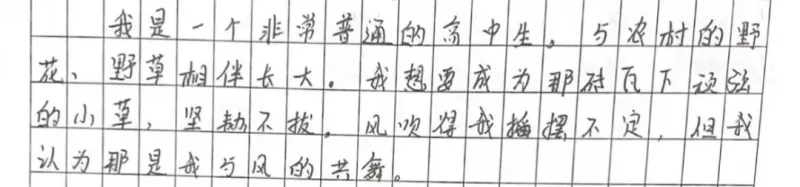 我是一个非常普通的高中生，与农村的野
花、野草相伴长大。我想要成为那砖瓦下顽强
的小草，坚韧不拔，风吹得我摇摆不定，但我
认为那是我与风的共舞。